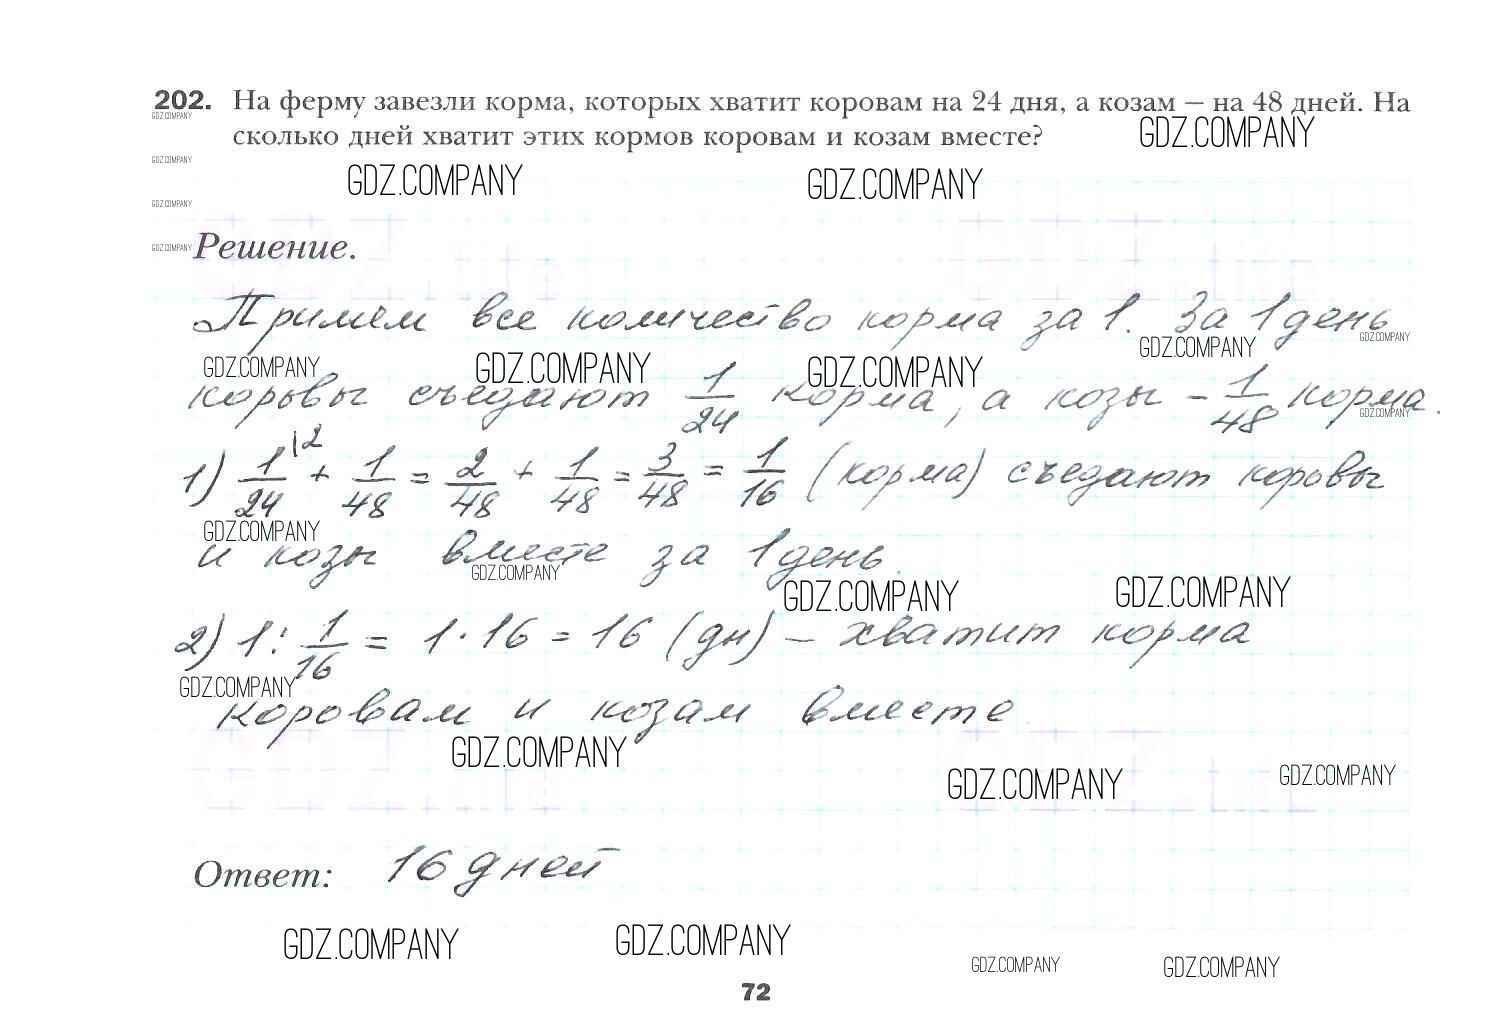 202. На ферму завезли корма, которых хватит коровам на 24 дня, а козам – на 48 дней. На
GDZ.COMPANY
сколько дней хватит этих кормов коровам и козам вместе?
GDZ.COMPANY
GDZ.COMPANY
GDZ.COMPANY
GDZ.COMPANY
GDZ.COMPANY
GDZ.COMPANY
Решение.
Примем все количество корма за 1. За 1 день
GDZ.COMPANY
GDZ.COMPANY
GDZ.COMPANY
GDZ.COMPANY
GDZ.COMPANY
коровы съедают 1/24 корма, а козы - 1/48 корма.
GDZ.COMPANY
1) 1/24 \2 + 1/48 = 2/48 + 1/48 = 3/48 = 1/16 (корма) съедают коровы
GDZ.COMPANY
и козы вместе за 1 день.
GDZ.COMPANY
GDZ.COMPANY
GDZ.COMPANY
2) 1 : 1/16 = 1 · 16 = 16 (дн) – хватит корма
GDZ.COMPANY
коровам и козам вместе
GDZ.COMPANY
GDZ.COMPANY
GDZ.COMPANY
Ответ: 16 дней
GDZ.COMPANY
GDZ.COMPANY
GDZ.COMPANY
GDZ.COMPANY
72